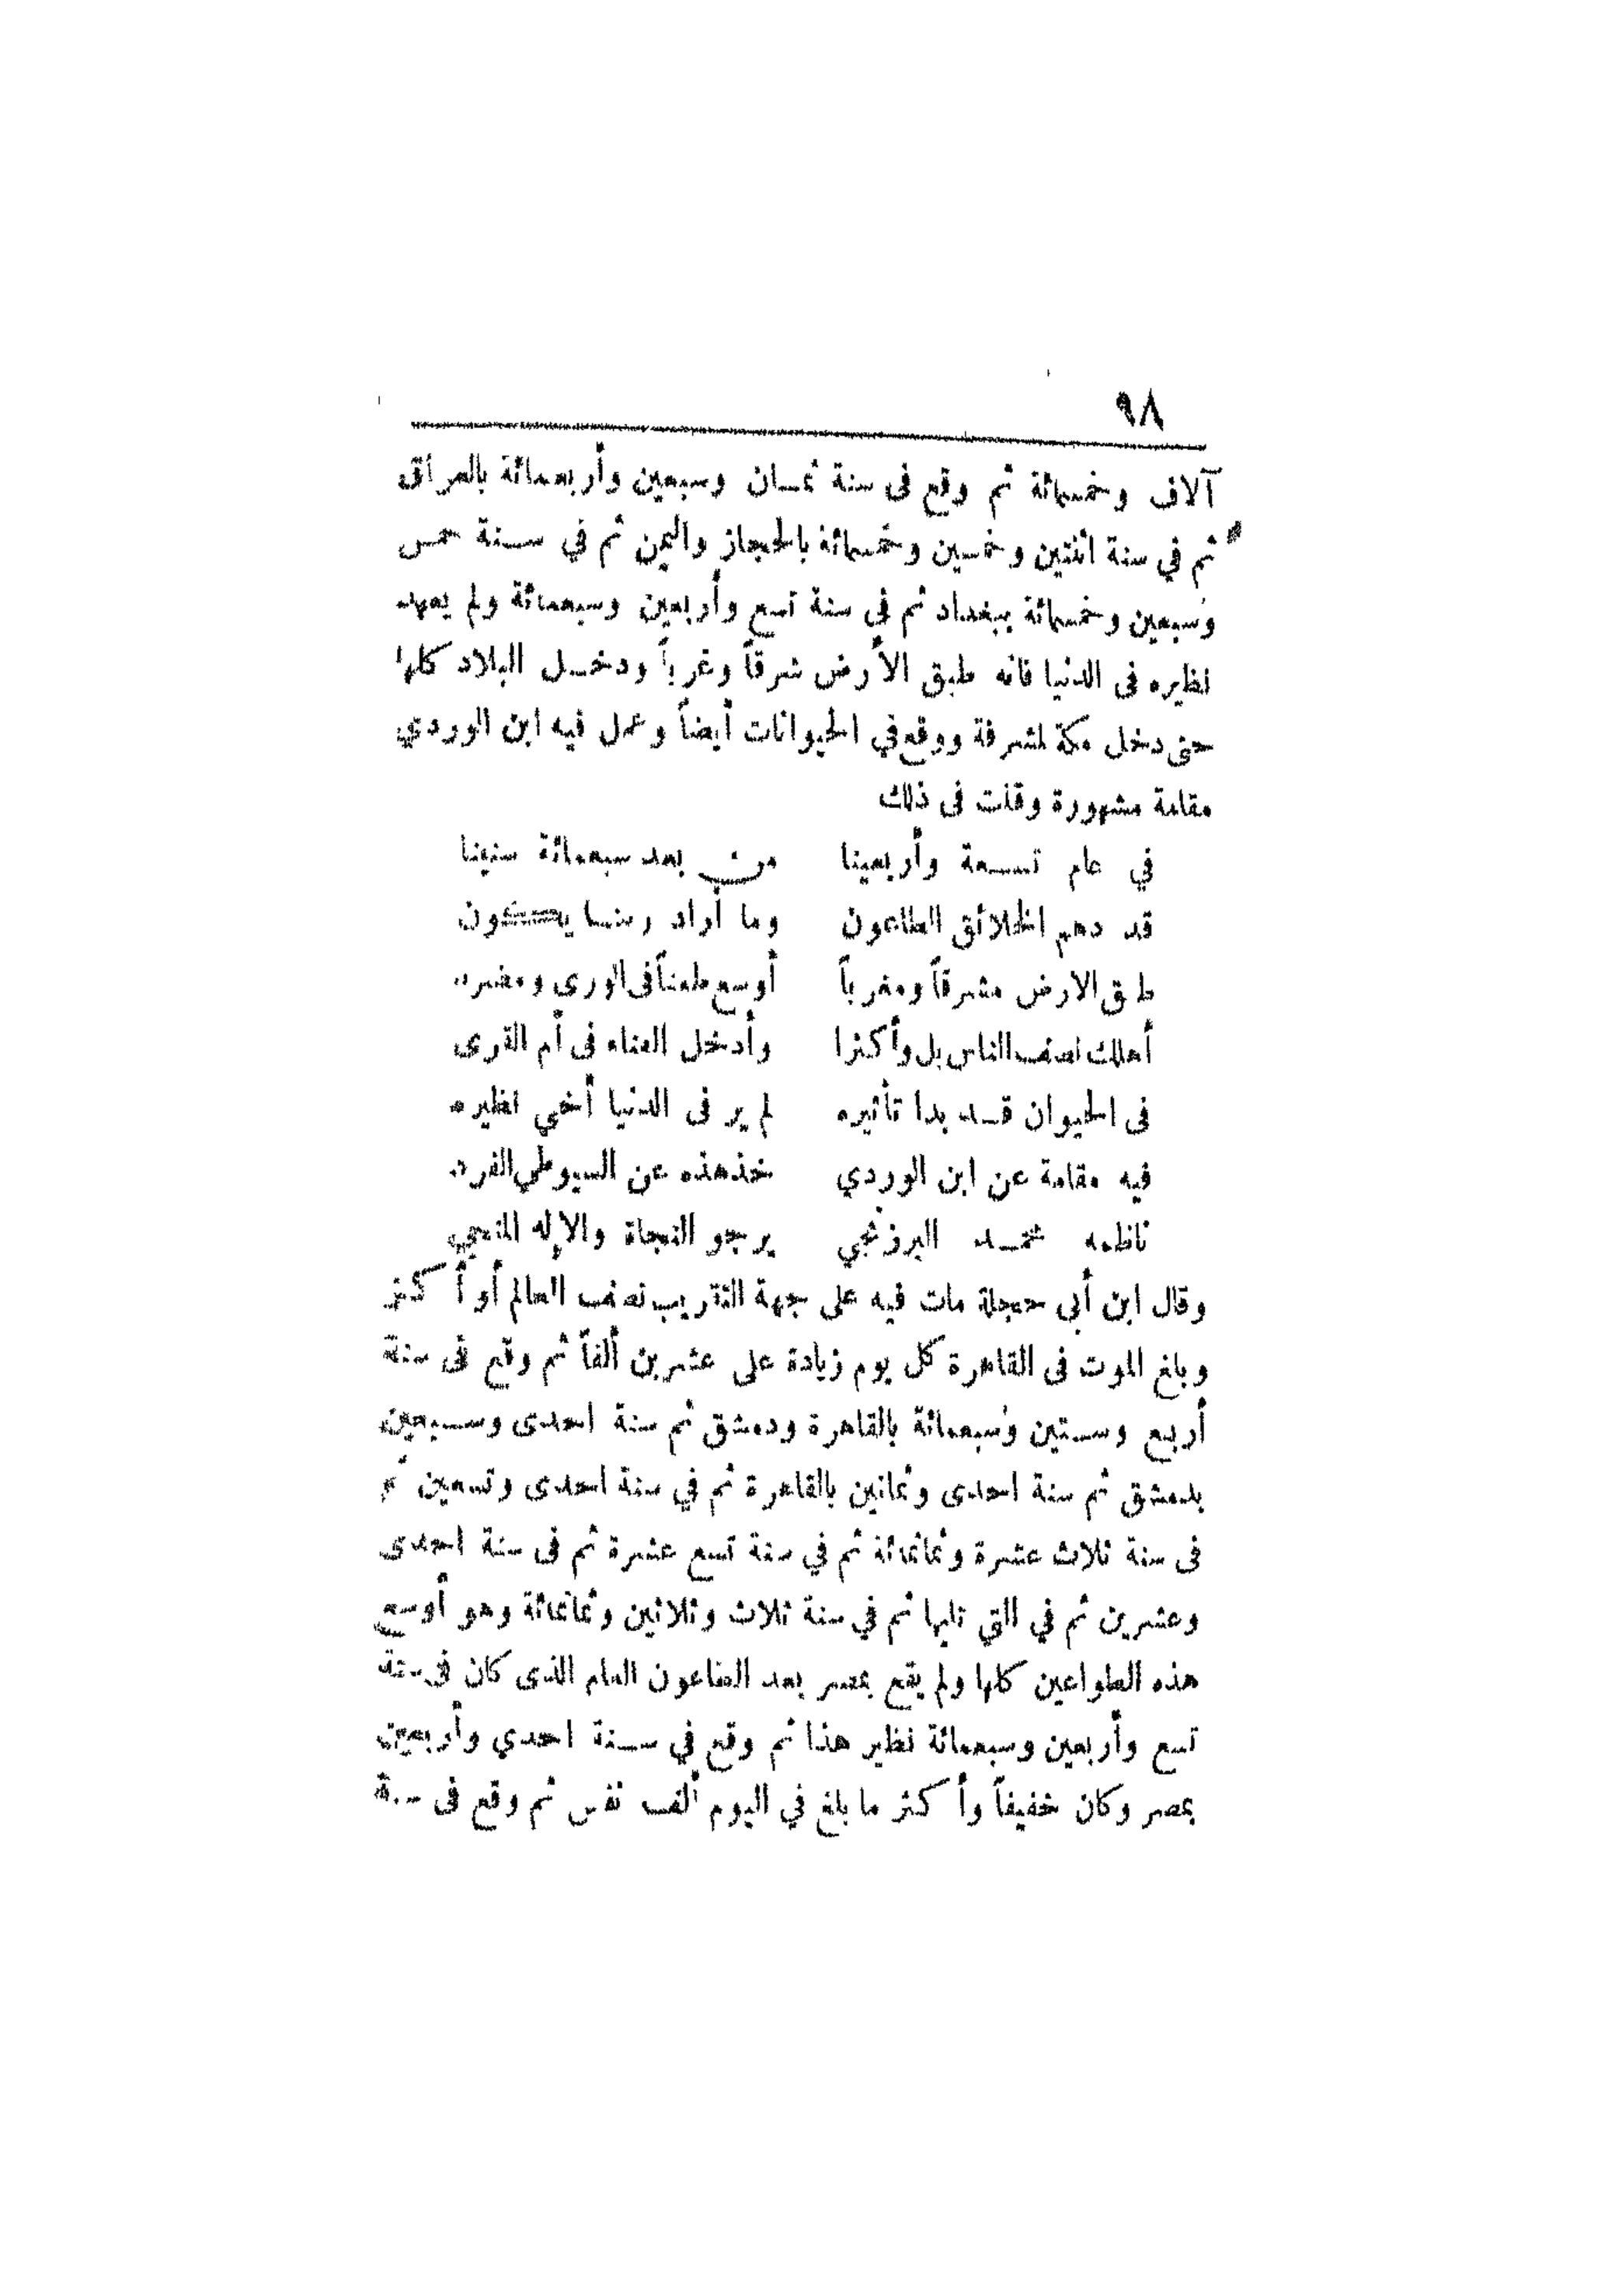 ٩٨
آلاف وخمسمائة ثم وقع فى سنة ثمان وسبعين وأربعمائة بالعراق
ثم في سنة اثنتين وخمسين وخمسمائة بالحجاز واليمن ثم في سنة خمس
وسبعين وخمسمائة ببغداد ثم فى سنة تسع وأربعين وسبعمائة ولم يعهد
نظيره فى الدنيا فانه طبق الأرض شرقاً وغرباً ودخل البلاد كلها
حتى دخل مكة لمشرفة ووقع في الحيوانات أيضاً وعمل فيه ابن الوردي
مقامة مشهورة وقلت فى ذلك
في عام تسعة وأربعينا من بعد سبعمائة سنينا
قد دهم الخلائق الطاعون وما أراد ربنا يكون
طبق الارض مشرقاً ومغرباً أوسع طعناً فى الورى ومضربا
أهلك نصف الناس بل وأكثرا وأدخل العناء فى أم القرى
فى الحيوان قد بدا تأثيره لم ير فى الدنيا أخي نظيره
فيه مقامة عن ابن الوردي خذ هذه عن السيوطي الفرد
ناظمه محمد البرزنجي يرجو النجاة والإله المنجي
وقال ابن أبى حجلة مات فيه على جهة التقريب نصف العالم أو أكثر
وبلغ الموت فى القاهرة كل يوم زيادة على عشرين ألفاً ثم وقع فى سنة
أربع وستين وسبعمائة بالقاهرة ودمشق ثم سنة احدى وسبعين
بدمشق ثم سنة احدى وثمانين بالقاهرة ثم في سنة احدى وتسعين ثم
فى سنة ثلاث عشرة وثمانمائة ثم في سنة تسع عشرة ثم فى سنة احدى
وعشرين ثم في التي تليها ثم في سنة ثلاث وثلاثين وثمانمائة وهو أوسع
هذه الطواعين كلها ولم يقع بمصر بعد الطاعون العام الذى كان فى سنة
تسع وأربعين وسبعمائة نظير هذا ثم وقع في سنة احدي وأربعين
بمصر وكان خفيفاً وأكثر ما بلغ في اليوم ألف نفس ثم وقع فى سنة